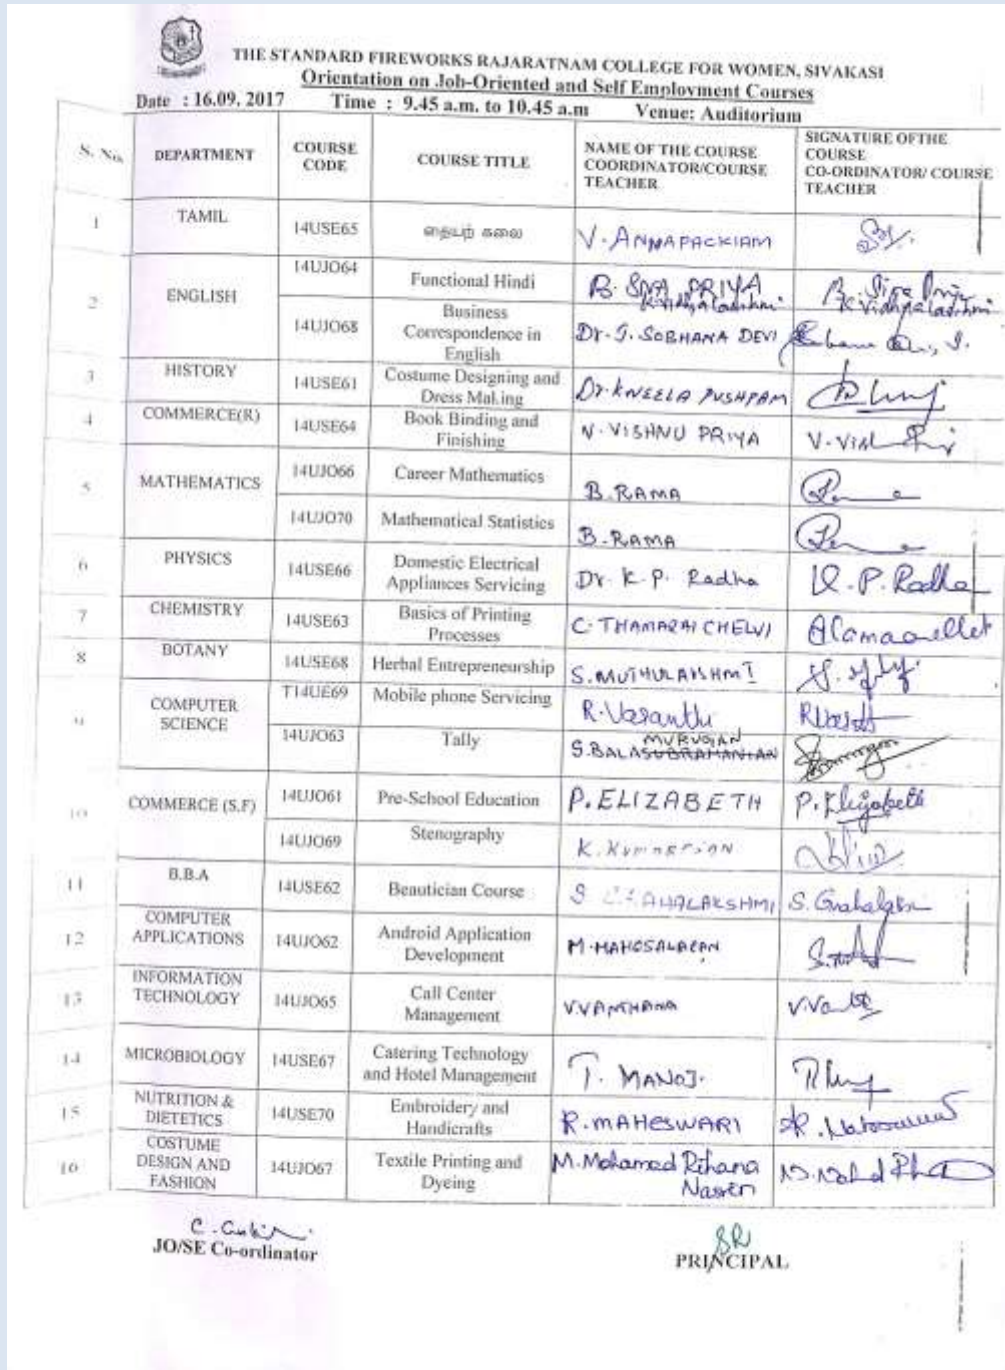 THE STANDARD FIREWORKS RAJARATNAM COLLEGE FOR WOMEN, SIVAKASI
Orientation on Job-Oriented and Self Employment Courses
Date : 16.09. 2017 Time : 9.45 a.m. to 10.45 a.m Venue: Auditorium
S. No. DEPARTMENT COURSE CODE COURSE TITLE NAME OF THE COURSE COORDINATOR/COURSE TEACHER SIGNATURE OF THE COURSE CO-ORDINATOR/ COURSE TEACHER
1 TAMIL 14USE65 தையற் கலை V. ANNAPACKIAM
2 ENGLISH 14UJO64 Functional Hindi B. SIVA PRIYA
K.Vidhyalakshmi K.Vidhyalakshmi
14UJO68 Business Correspondence in English Dr. J. SOBHANA DEVI
3 HISTORY 14USE61 Costume Designing and Dress Making Dr. K NEELA PUSHPAM
4 COMMERCE(R) 14USE64 Book Binding and Finishing N. VISHNU PRIYA
5 MATHEMATICS 14UJO66 Career Mathematics B. RAMA
14UJO70 Mathematical Statistics B. RAMA
6 PHYSICS 14USE66 Domestic Electrical Appliances Servicing Dr. K. P. Radha K. P. Radha
7 CHEMISTRY 14USE63 Basics of Printing Processes C. THAMARAI CHELVI
8 BOTANY 14USE68 Herbal Entrepreneurship S. MUTHULAKSHMI
9 COMPUTER SCIENCE T14UE69 Mobile phone Servicing R. Vasanthi
14UJO63 Tally S. BALAMURUGAN
10 COMMERCE (S.F) 14UJO61 Pre-School Education P. ELIZABETH P. Elizabeth
14UJO69 Stenography K.
11 B.B.A 14USE62 Beautician Course S
12 COMPUTER APPLICATIONS 14UJO62 Android Application Development M.
13 INFORMATION TECHNOLOGY 14UJO65 Call Center Management V. VANTHANA
14 MICROBIOLOGY 14USE67 Catering Technology and Hotel Management T. MANOJ.
15 NUTRITION & DIETETICS 14USE70 Embroidery and Handicrafts R. MAHESWARI
16 COSTUME DESIGN AND FASHION 14UJO67 Textile Printing and Dyeing M. Mohamed Rihana Nasren
JO/SE Co-ordinator PRINCIPAL